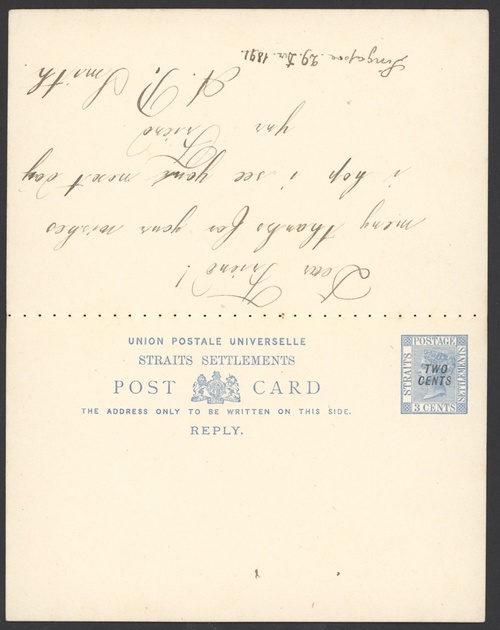 Dear Friend!
meny thanks for your wishes
i hop i see your next day
your
Friend
A. P. Smith
Singapore 29. Dec. 1891.
UNION POSTALE UNIVERSELLE
STRAITS SETTLEMENTS
POST CARD
THE ADDRESS ONLY TO BE WRITTEN ON THIS SIDE.
REPLY.
POSTAGE
STRAITS
SETTLEMENTS
TWO
CENTS
3 CENTS